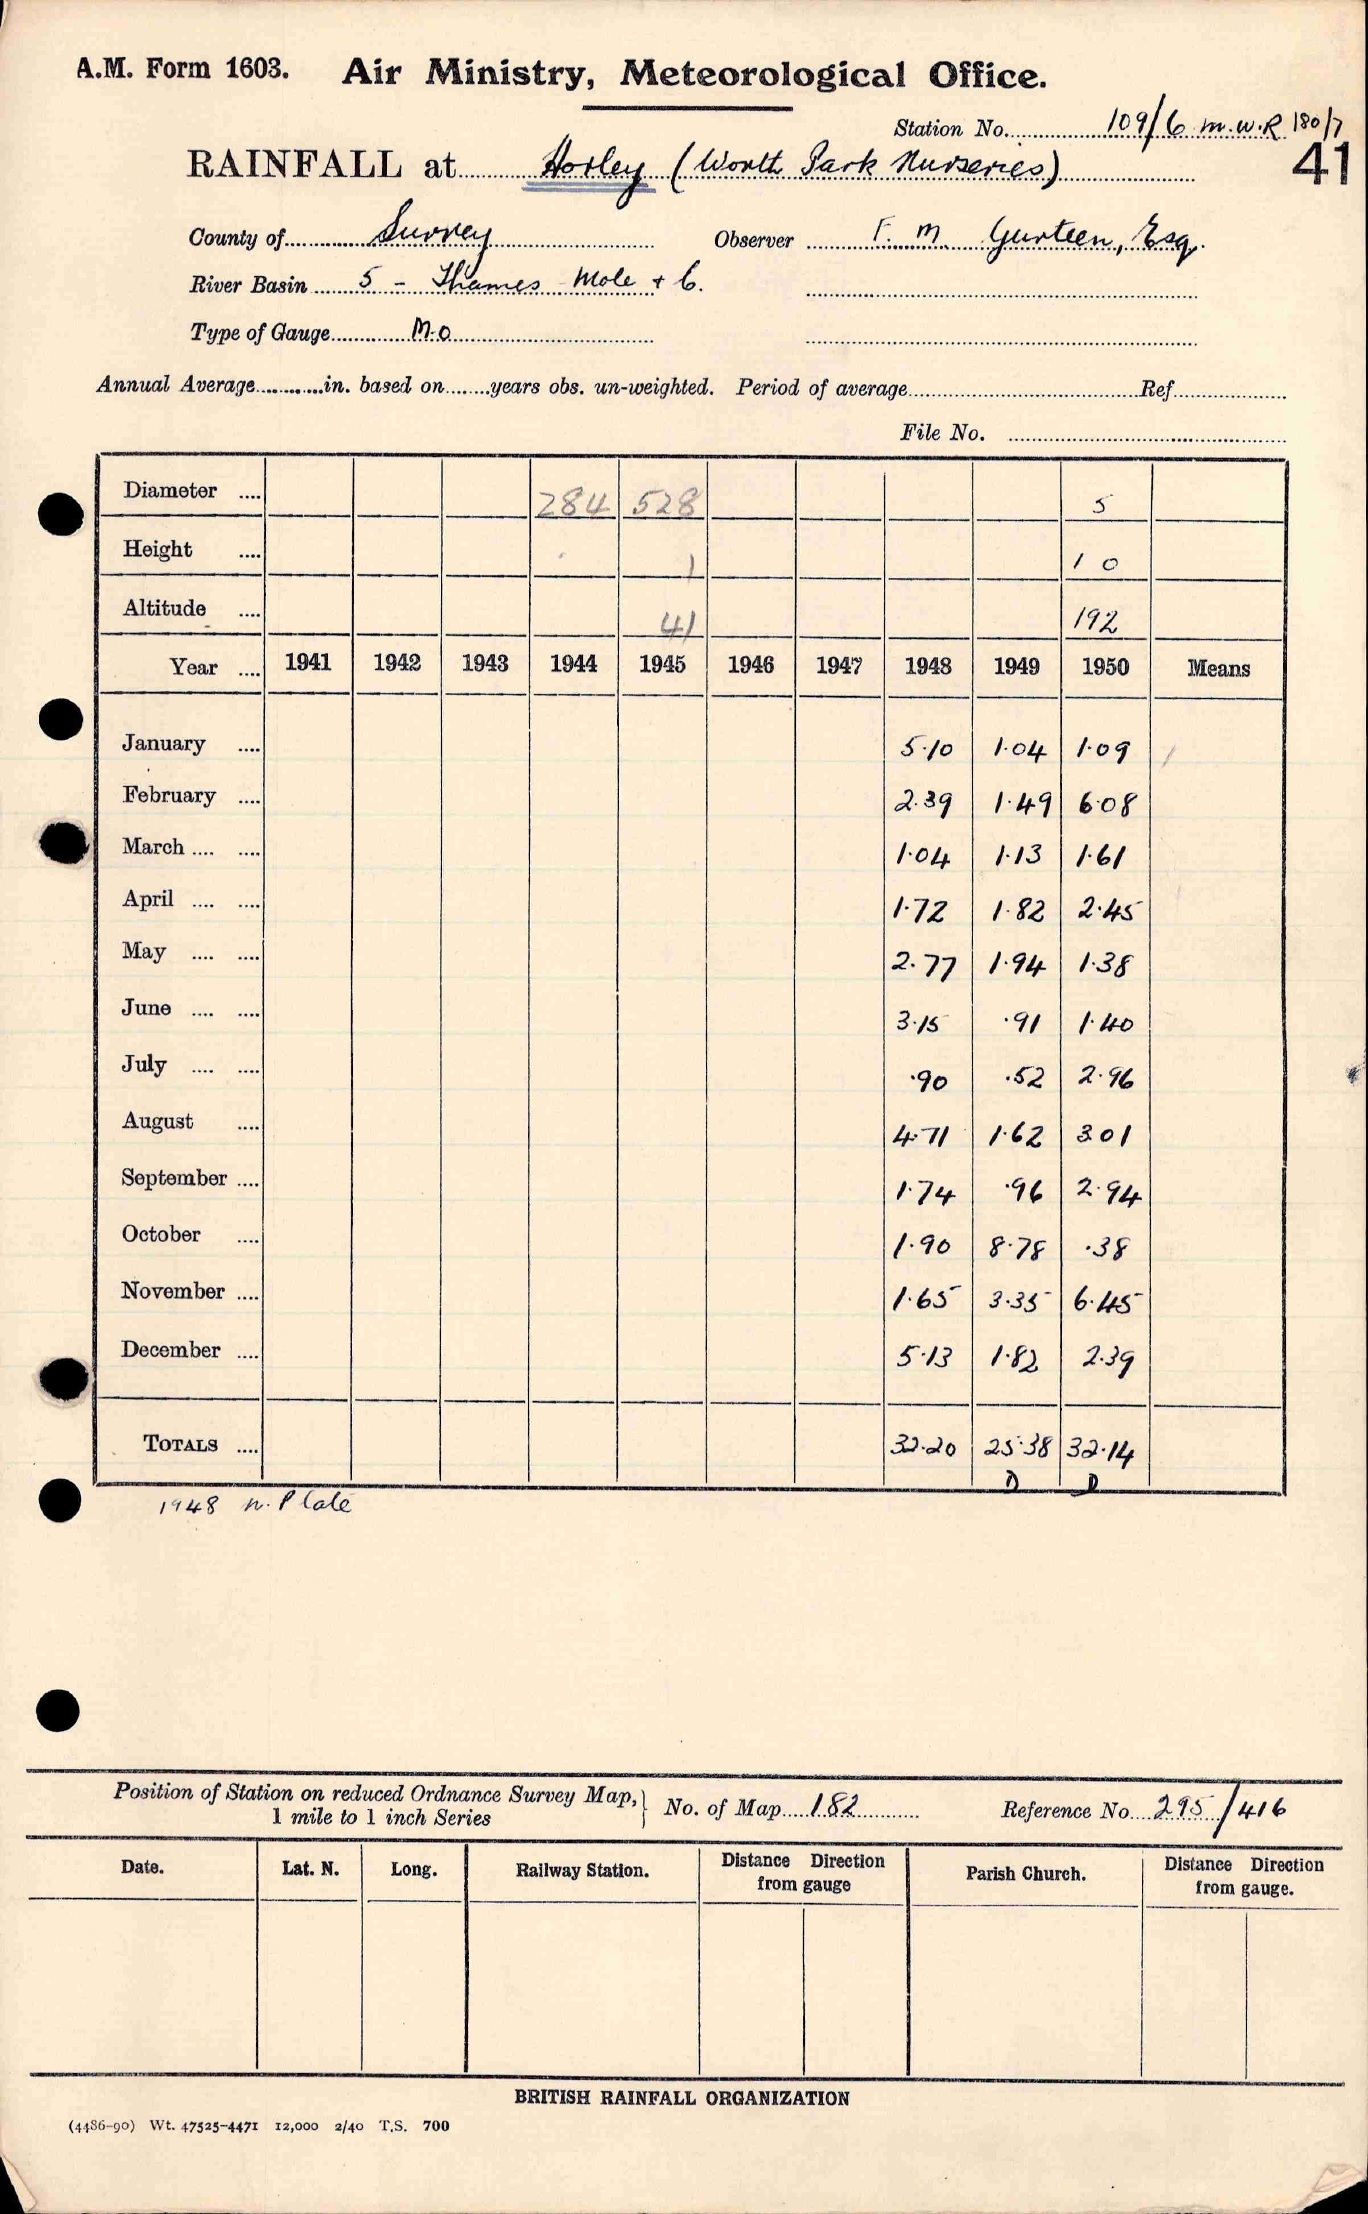 A.M. Form 1603. Air Ministry, Meteorological Office.
Station No. 109/6 M.W.R 180/7
41
RAINFALL at Horley (Worth Park Nurseries)
County of Surrey Observer F. M. Gurteen, Esq.
River Basin 5 - Thames - Mole + C.
Type of Gauge M.O
Annual Average in. based on years obs. un-weighted. Period of average Ref
File No.
Diameter .... 284 528 5
Height .... 1 1 0
Altitude .... 41 192
Year .... 1941 1942 1943 1944 1945 1946 1947 1948 1949 1950 Means
January .... 5.10 1.04 1.09
February .... 2.39 1.49 6.08
March .... .... 1.04 1.13 1.61
April .... .... 1.72 1.82 2.45
May .... .... 2.77 1.94 1.38
June .... .... 3.15 .91 1.40
July .... .... .90 .52 2.96
August .... 4.71 1.62 3.01
September .... 1.74 .96 2.94
October .... 1.90 8.78 .38
November .... 1.65 3.35 6.45
December .... 5.13 1.82 2.39
TOTALS .... 32.20 25.38 32.14
D D
1948 n. P late
Position of Station on reduced Ordnance Survey Map, 1 mile to 1 inch Series } No. of Map 182 Reference No. 295/416
Date. Lat. N. Long. Railway Station. Distance Direction from gauge Parish Church. Distance Direction from gauge.
BRITISH RAINFALL ORGANIZATION
(4486-90) Wt. 47525-4471 12,000 2/40 T.S. 700